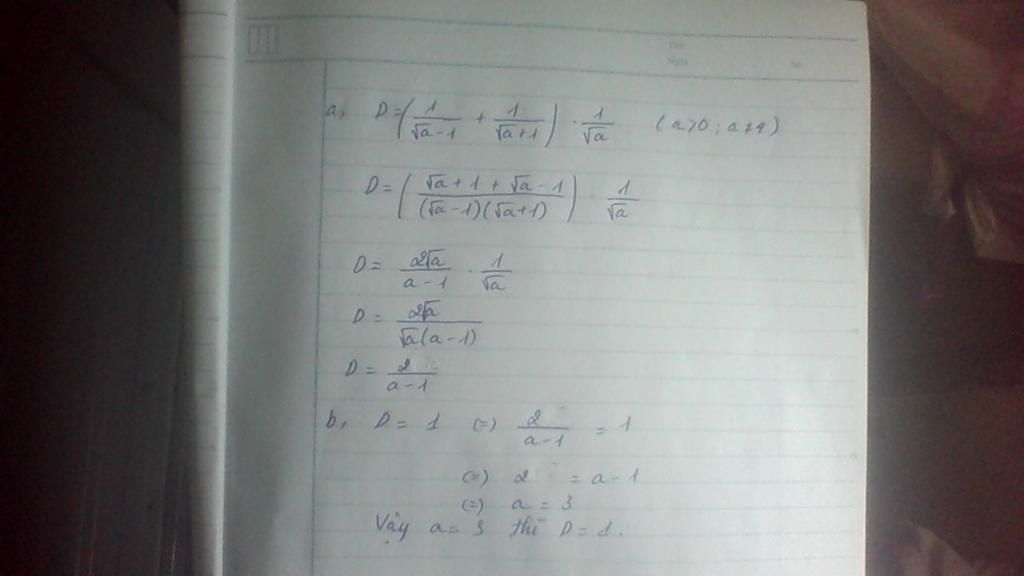 a, D = (1/(√a-1) + 1/(√a+1)) · 1/√a (a>0; a≠1)
D = ((√a+1+√a-1)/((√a-1)(√a+1))) · 1/√a
D = 2√a/(a-1) · 1/√a
D = 2√a/(√a(a-1))
D = 2/(a-1)
b, D = 1 (=) 2/(a-1) = 1
(=) 2 = a-1
(=) a = 3
Vậy a = 3 thì D = 1.